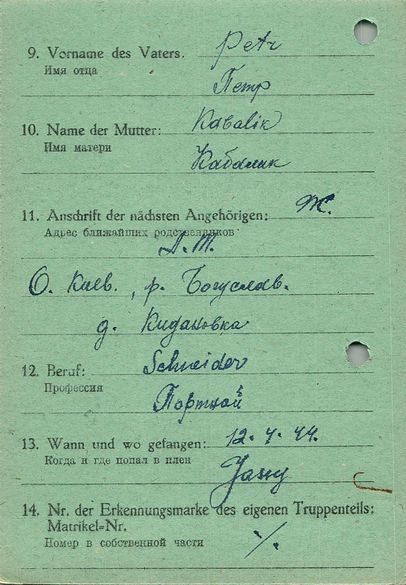 9. Vorname des Vaters: Petr
Имя отца
Петр
10. Name der Mutter: Kabalik
Имя матери
Кабалик
11. Anschrift der nächsten Angehörigen: M.
Адрес ближайших родственников
А.М.
О. Киев., р. Богуслав.
д. Кидановка
12. Beruf: Schneider
Профессия
Портной
13. Wann und wo gefangen: 12.4.44.
Когда и где попал в плен
14. Nr. der Erkennungsmarke des eigenen Truppenteils:
Matrikel=Nr.
Номер в собственной части ./.